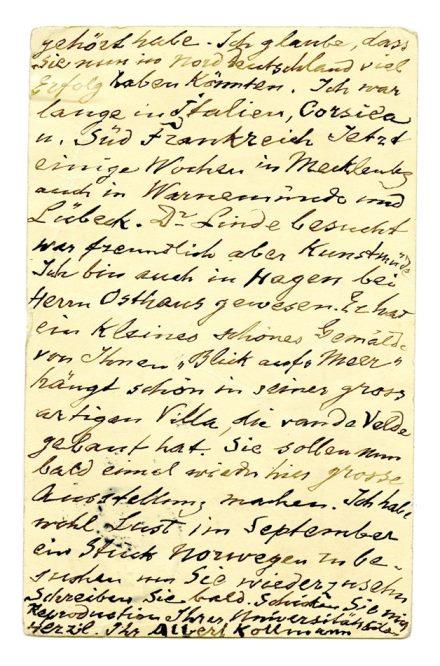 gehört habe. Ich glaube, dass
Sie nun in Norddeutschland viel
Erfolg haben könnten. Ich war
lange in Italien, Corsica
u. Süd Frankreich Jetzt
einige Wochen in Mecklenbg
auch in Warnemünde und
Lübeck. Dr Linde besucht
war freundlich aber Kunstmüde
Ich bin auch in Hagen bei
Herrn Osthaus gewesen. Er hat
ein kleines schönes Gemälde
von Ihnen „Blick aufs Meer"
hängt schön in seiner gross
artigen Villa, die van de Velde
gebaut hat. Sie sollen nun
bald einmal wieder hier grosse
Ausstellung machen. Ich habe
wohl Lust im September
ein Stück Norwegen zu be-
suchen um Sie wiederzusehn
Schreiben Sie bald. Schicken Sie mir
Reproduction Ihrer Universitäts
Herzl. Ihr Albert Kollmann